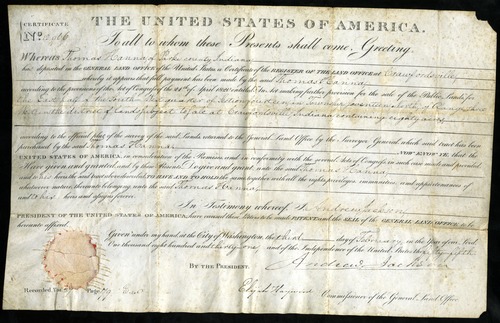 THE UNITED STATES OF AMERICA.
CERTIFICATE
No.
To all to whom these Presents shall come, Greeting.
Whereas Thomas Hanna of Parke county Indiana
has deposited in the GENERAL LAND OFFICE of the United States, a Certificate of the REGISTER OF THE LAND OFFICE at Crawfordsville
whereby it appears that full payment has been made by the said Thomas Hanna
according to the provisions of the Act of Congress of the 24th of April 1820 entitled "An Act making further provision for the sale of the Public Lands" for
the East half of the South West quarter of Section in Township seventeen North of Range
in the District of Lands subject to Sale at Crawfordsville, Indiana containing eighty acres
according to the official plat of the survey of the said Lands, returned to the General Land Office by the Surveyor General, which said tract has been
purchased by the said Thomas Hanna NOW KNOW YE, that the
UNITED STATES OF AMERICA, in consideration of the Premises, and in conformity with the several Acts of Congress, in such case made and provided,
Have given and granted, and by these Presents Do give and grant, unto the said Thomas Hanna
and to his heirs the said tract above described; TO HAVE AND TO HOLD the same, together with all the rights, privileges, immunities, and appurtenances of
whatsoever nature, thereunto belonging, unto the said Thomas Hanna
and to his heirs and assigns forever.
In Testimony whereof, I, Andrew Jackson
PRESIDENT OF THE UNITED STATES OF AMERICA, have caused these Letters to be made PATENT, and the SEAL of the GENERAL LAND OFFICE to be
hereunto affixed.
Given under my hand, at the City of Washington, the third day of February in the Year of our Lord
One thousand eight hundred and thirty one and of the Independence of the United States the fifty fifth
BY THE PRESIDENT,
Andrew Jackson
Elijah Hayward
Commissioner of the General Land Office
Recorded Vol. Page